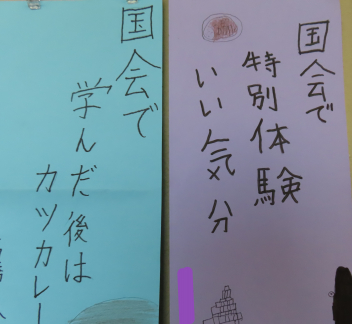 国会で
特別体験
いい気分
国会で
学んだ後は
カツカレー